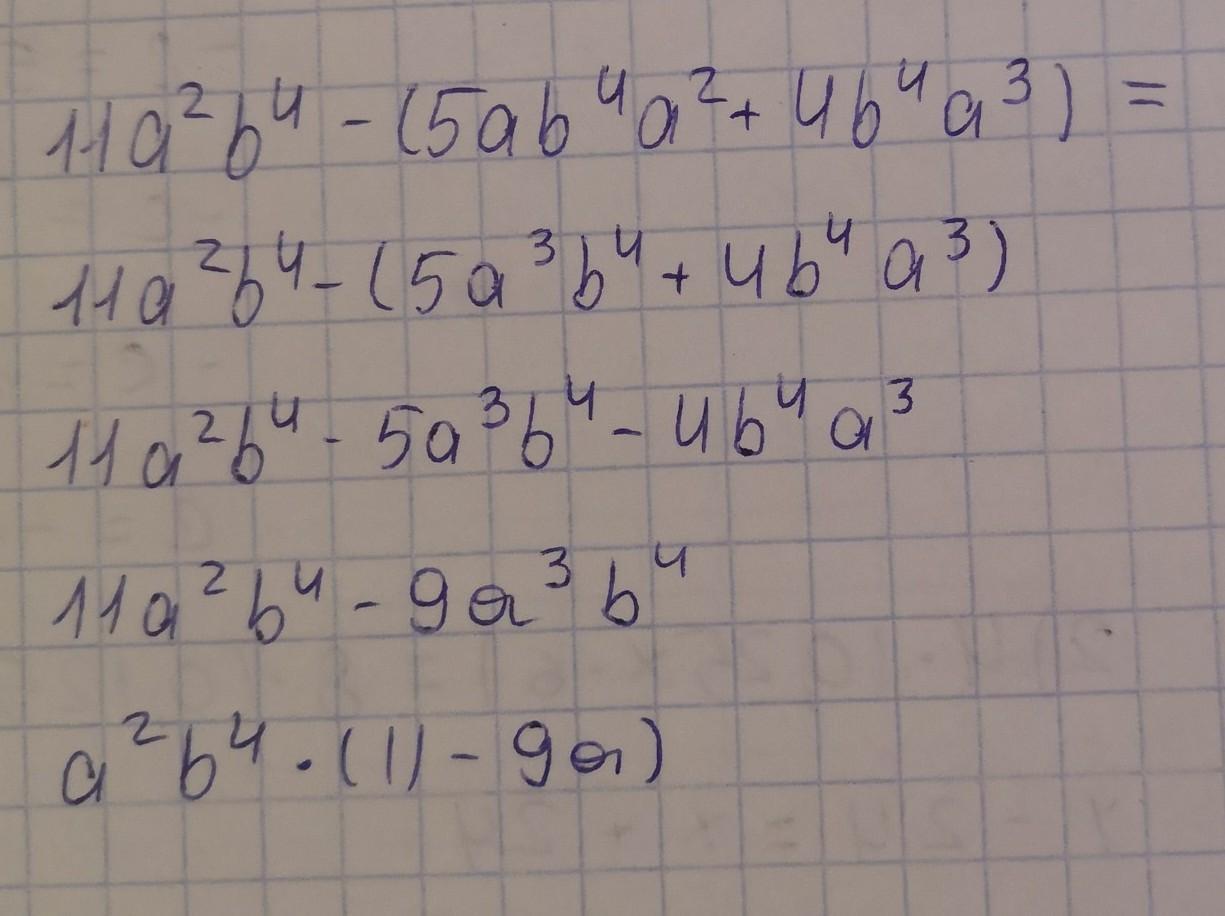 11a²b⁴ - (5ab⁴a² + 4b⁴a³) =
11a²b⁴ - (5a³b⁴ + 4b⁴a³)
11a²b⁴ - 5a³b⁴ - 4b⁴a³
11a²b⁴ - 9a³b⁴
a²b⁴ · (11 - 9a)